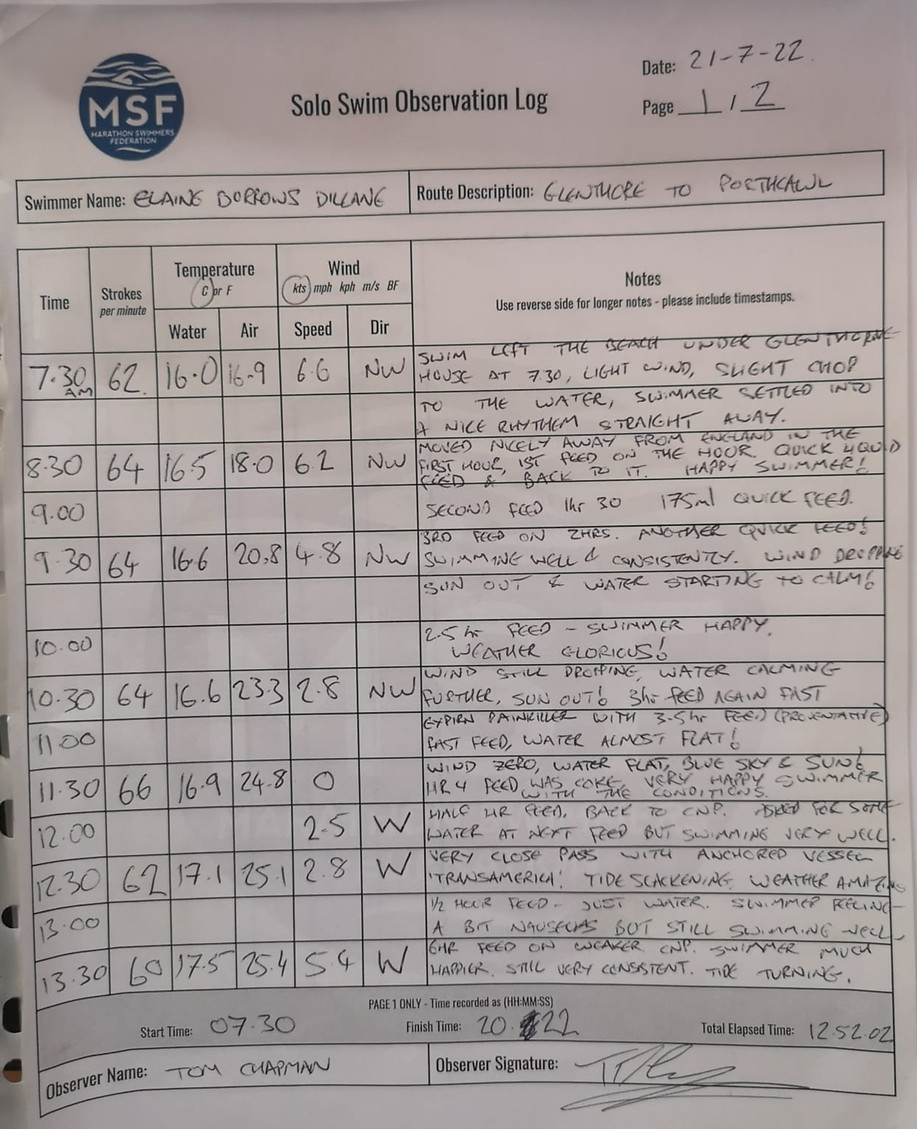 MSF
MARATHON SWIMMERS
FEDERATION
Solo Swim Observation Log
Date: 21-7-22.
Page 1 / 2
Swimmer Name: ELAINE BURROWS DILLANE
Route Description: GLENTHORE TO PORTHCAWL
Time
Strokes
per minute
Temperature
C or F
Wind
kts mph kph m/s BF
Notes
Use reverse side for longer notes - please include timestamps.
Water Air Speed Dir
SWIM LEFT THE BEACH UNDER GLENTHORNE
7.30 AM 62. 16.0 16.9 6.6 NW HOUSE AT 7.30, LIGHT WIND, SLIGHT CHOP
TO THE WATER, SWIMMER SETTLED INTO
A NICE RHYTHEM STRAIGHT AWAY.
MOVED NICELY AWAY FROM ENGLAND IN THE
8.30 64 16.5 18.0 6.2 NW FIRST HOUR, 1ST FEED ON THE HOUR. QUICK LIQUID
FEED & BACK TO IT. HAPPY SWIMMER!
9.00 SECOND FEED 1hr 30 175ml QUICK FEED.
3RD FEED ON 2HRS. ANOTHER QUICK FEED!
9.30 64 16.6 20.8 4.8 NW SWIMMING WELL & CONSISTENTLY. WIND DROPPING
SUN OUT & WATER STARTING TO CALM!
10.00 2.5 hr FEED - SWIMMER HAPPY.
WEATHER GLORIOUS!
WIND STILL DROPPING, WATER CALMING
10.30 64 16.6 23.3 2.8 NW FURTHER, SUN OUT! 3hr FEED AGAIN FAST
11.00 PAINKILLER WITH 3.5hr FEED (PREVENTATIVE)
FAST FEED, WATER ALMOST FLAT!
WIND ZERO, WATER FLAT, BLUE SKY & SUN!
11.30 66 16.9 24.8 0 HR 4 FEED WAS COKE. VERY HAPPY SWIMMER
WITH THE CONDITIONS.
12.00 2.5 W HALF HR FEED, BACK TO CNP. ASKED FOR SOME
WATER AT NEXT FEED BUT SWIMMING VERY WELL.
VERY CLOSE PASS WITH ANCHORED VESSEL
12.30 62 17.1 25.1 2.8 W 'TRANSAMERICA'. TIDE SLACKENING, WEATHER AMAZING
13.00 1/2 HOUR FEED - JUST WATER. SWIMMER FEELING
A BIT NAUSEAS BUT STILL SWIMMING WELL
6HR FEED ON WEAKER CNP. SWIMMER MUCH
13.30 60 17.5 25.4 5.4 W HAPPIER. STILL VERY CONSISTENT. TIDE TURNING.
PAGE 1 ONLY - Time recorded as (HH:MM:SS)
Start Time: 07.30 Finish Time: 20.22 Total Elapsed Time: 12.52.02
Observer Name: TOM CHAPMAN Observer Signature: